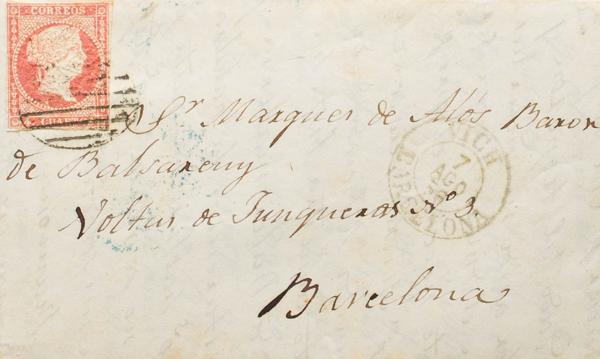 CORREOS
CUARTOS
Sr Marques de Alós Baron
de Balsareny
Voltas de Junqueras Nº 3
Barcelona
VICH
7
AGO
BARCELONA